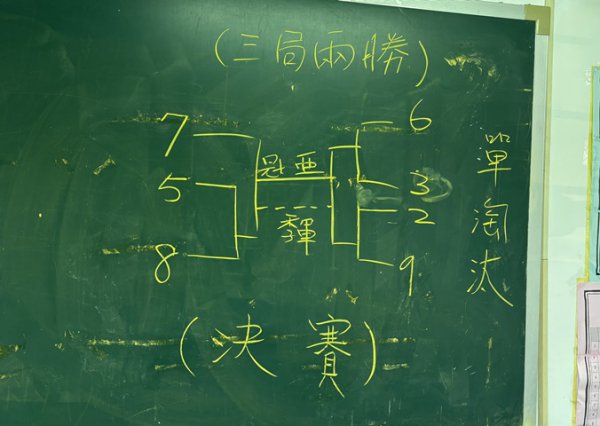 (三局兩勝)
7
6
單淘汰
冠亞
5
3
2
季殿
8
9
(決賽)